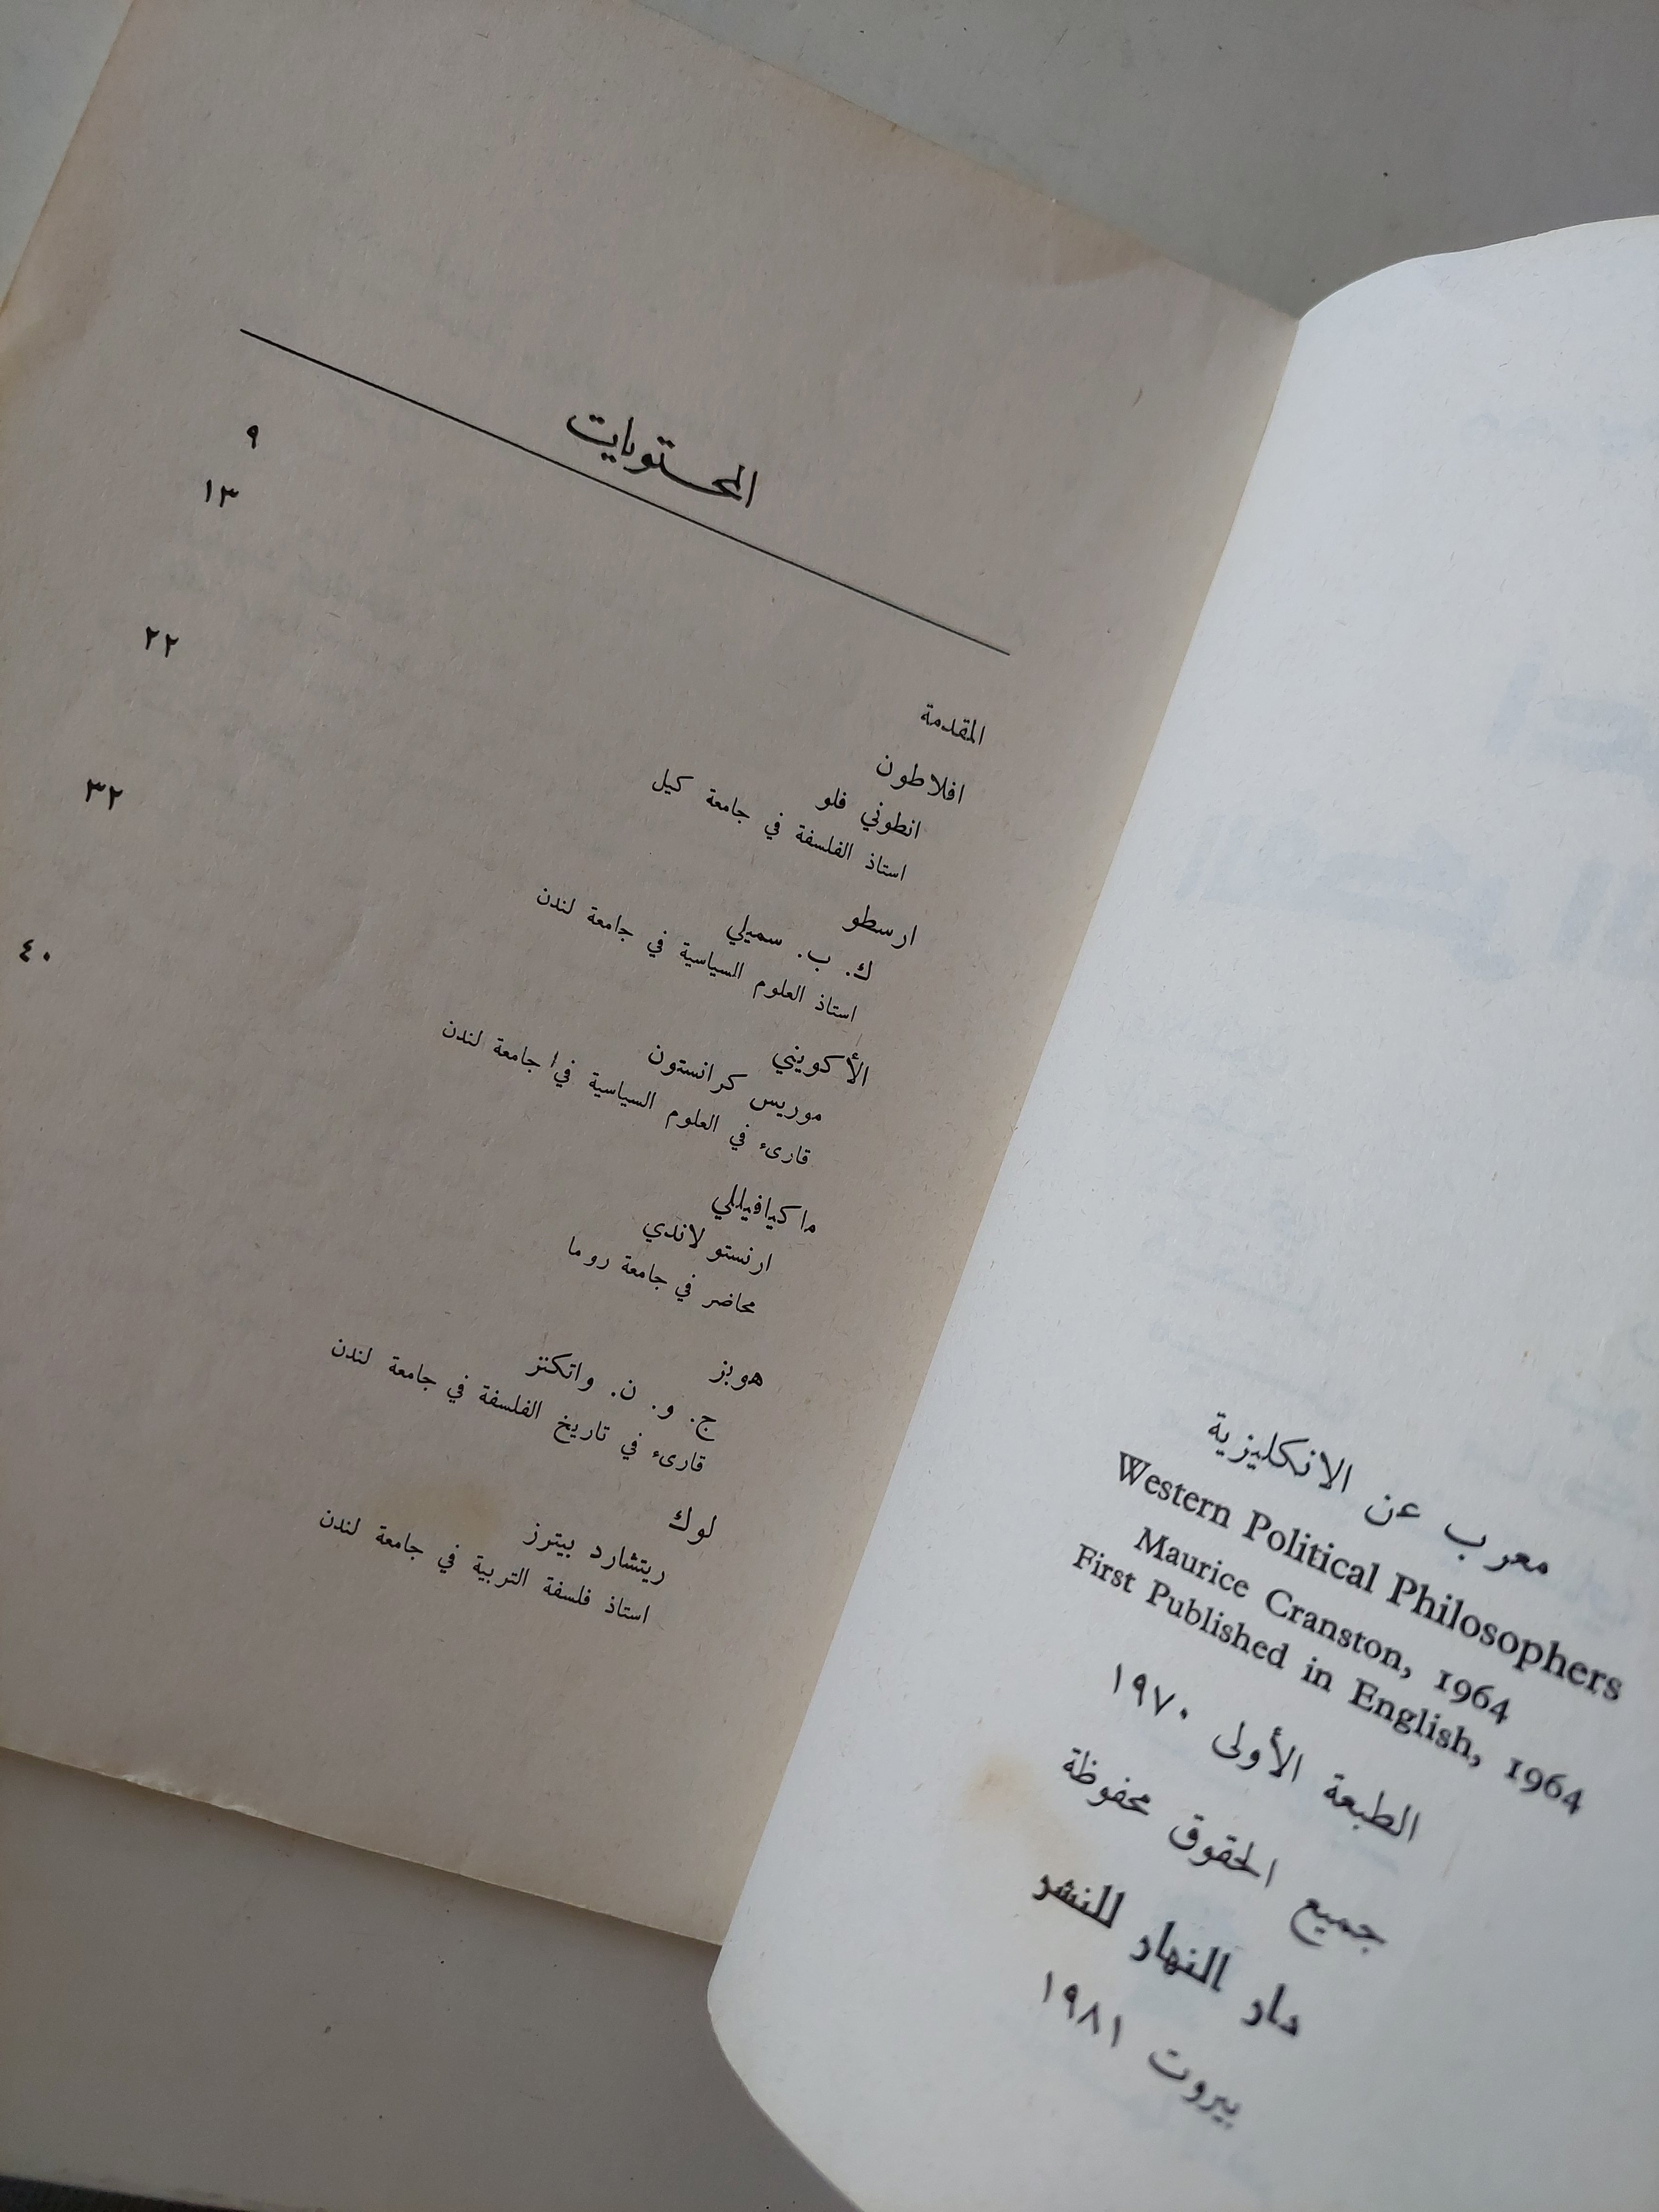 معرب عن الانكليزية
Western Political Philosophers
Maurice Cranston, 1964
First Published in English, 1964
الطبعة الأولى ١٩٧٠
جميع الحقوق محفوظة
دار النهار للنشر
بيروت ١٩٨١
المحتويات
المقدمة ٩
افلاطون ١٣
انطوني فلو
استاذ الفلسفة في جامعة كيل
ارسطو ٢٢
ك. ب. سميلي
استاذ العلوم السياسية في جامعة لندن
الأكويني ٣٢
موريس كرانستون
قارىء في العلوم السياسية في جامعة لندن
ماكيافيللي ٤٠
ارنستو لاندي
محاضر في جامعة روما
هوبز
ج. و. ن. واتكنز
قارىء في تاريخ الفلسفة في جامعة لندن
لوك
ريتشارد بيترز
استاذ فلسفة التربية في جامعة لندن